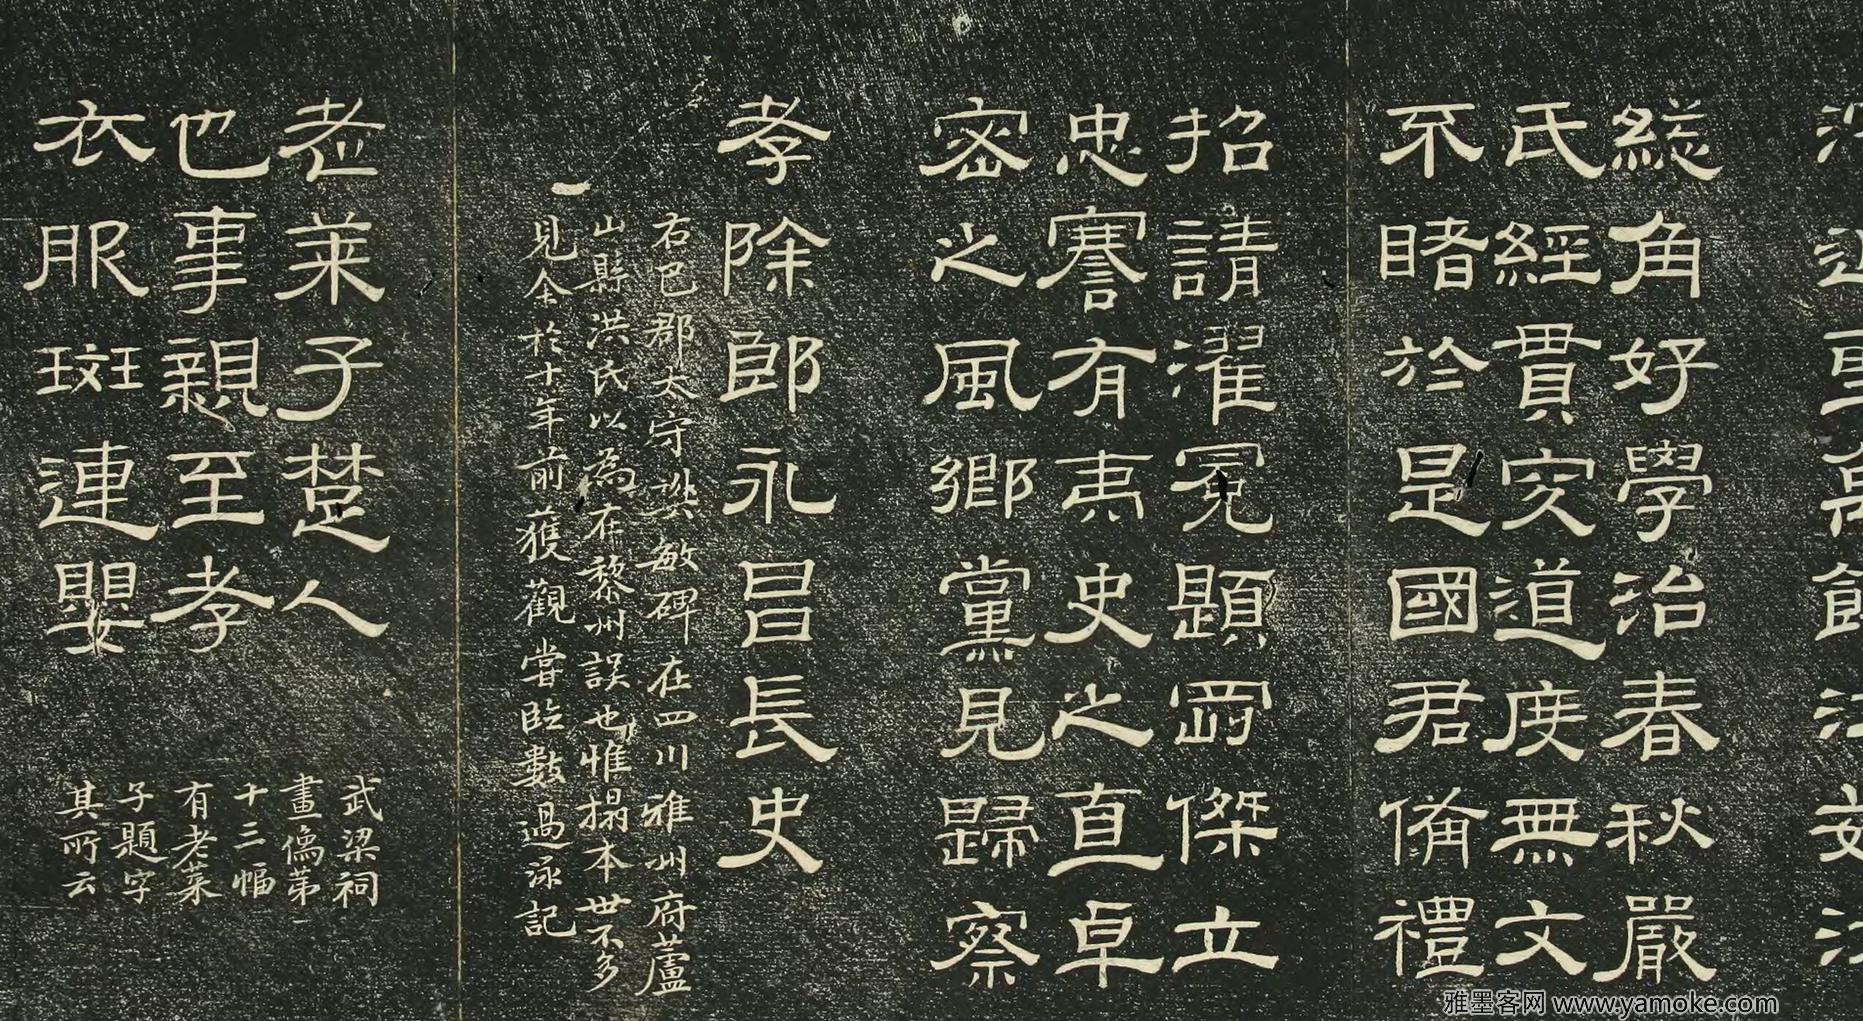 緫角好學治春秋嚴
氏經貫究道度無文
不睹於是國君備禮
招請濯冕題罰傑立
忠謇有夷史之直卓
密之風鄉黨見歸察
孝除郎永昌長史
右巴郡太守樊敏碑在四川雅州府蘆
山縣洪氏以為在黎州誤也惟搨本世不多
見余於十年前獲觀嘗臨數過泳記
老萊子楚人
也事親至孝
衣服斑連嬰
武梁祠
畫像第
十三幅
有老萊
子題字
其所云
雅墨客网 www.yamoke.com